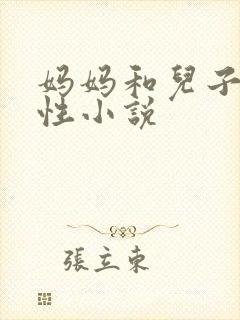 妈妈和兒子
性小説
張立東